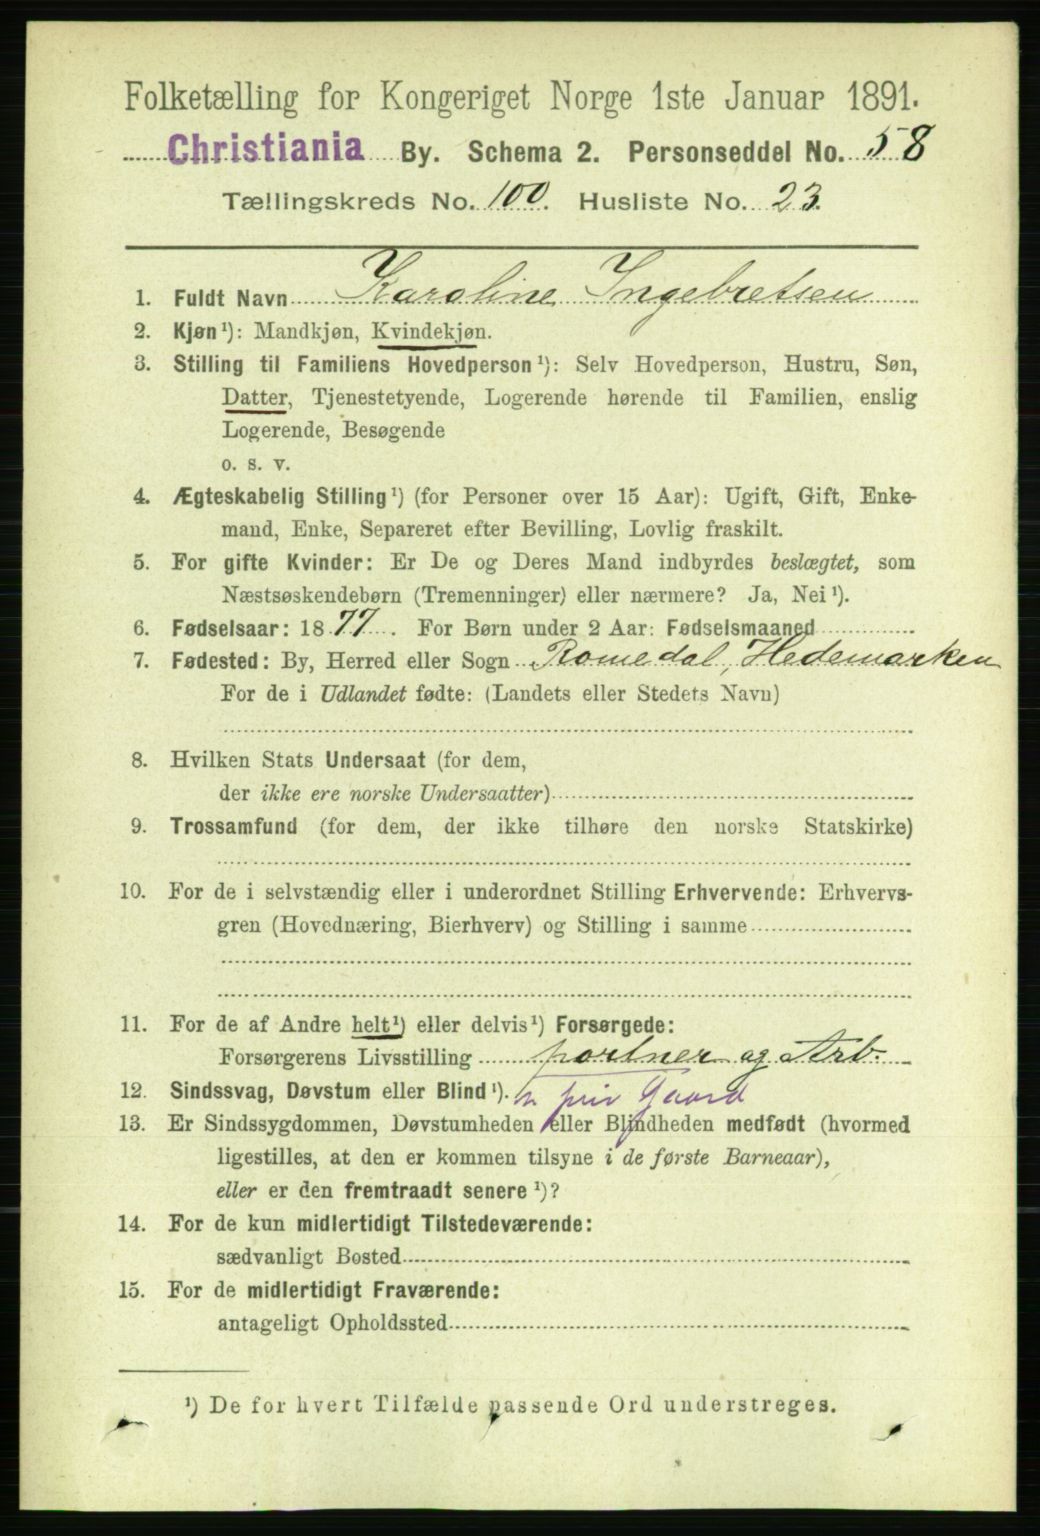 Folketælling for Kongeriget Norge 1ste Januar 1891.
Christiania By. Schema 2. Personseddel No. 58
Tællingskreds No. 100. Husliste No. 23.
1. Fuldt Navn Karoline Ingebretsen
2. Kjøn¹): Mandkjøn, Kvindekjøn.
3. Stilling til Familiens Hovedperson¹): Selv Hovedperson, Hustru, Søn,
Datter, Tjenestetyende, Logerende hørende til Familien, enslig
Logerende, Besøgende
o. s. v.
4. Ægteskabelig Stilling¹) (for Personer over 15 Aar): Ugift, Gift, Enke-
mand, Enke, Separeret efter Bevilling, Lovlig fraskilt.
5. For gifte Kvinder: Er De og Deres Mand indbyrdes beslægtet, som
Næstsøskendebørn (Tremenninger) eller nærmere? Ja, Nei¹).
6. Fødselsaar: 1877. For Børn under 2 Aar: Fødselsmaaned
7. Fødested: By, Herred eller Sogn Romedal, Hedemarken
For de i Udlandet fødte: (Landets eller Stedets Navn)
8. Hvilken Stats Undersaat (for dem,
der ikke ere norske Undersaatter)
9. Trossamfund (for dem, der ikke tilhøre den norske Statskirke)
10. For de i selvstændig eller i underordnet Stilling Erhvervende: Erhvervs-
gren (Hovednæring, Bierhverv) og Stilling i samme
11. For de af Andre helt¹) eller delvis¹) Forsørgede:
Forsørgerens Livsstilling portner og Arb.
12. Sindssvag, Døvstum eller Blind¹). priv Gaard
13. Er Sindssygdommen, Døvstumheden eller Blindheden medfødt (hvormed
ligestilles, at den er kommen tilsyne i de første Barneaar),
eller er den fremtraadt senere¹)?
14. For de kun midlertidigt Tilstedeværende:
sædvanligt Bosted
15. For de midlertidigt Fraværende:
antageligt Opholdssted
¹) De for hvert Tilfælde passende Ord understreges.